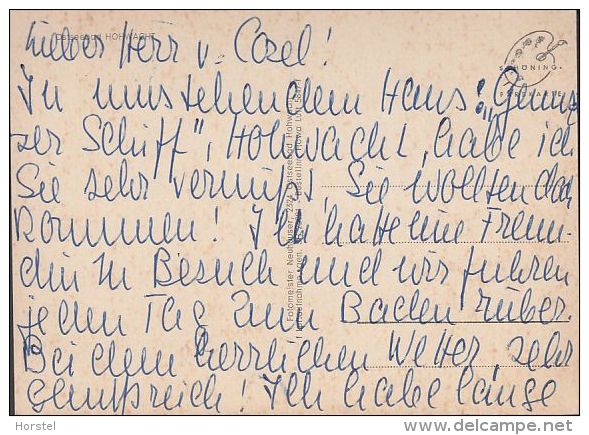 Ostseebad HOHWACHT
Lieber Herr v. Cosel!
SCHÖNING
In umstehendem Haus: "Genues
ser Schiff", Hohwacht, habe ich
Sie sehr vermißt, Sie wollten doch
kommen! Ich hatte eine Freun-
din zu Besuch und wir fuhren
jeden Tag zum Baden rüber.
Bei dem herrlichen Wetter, sehr
genußreich! Ich habe lange
Fotomeister Neuhäuser, 2324 Ostseebad Hohwacht
Horstel
www.delcampe.net